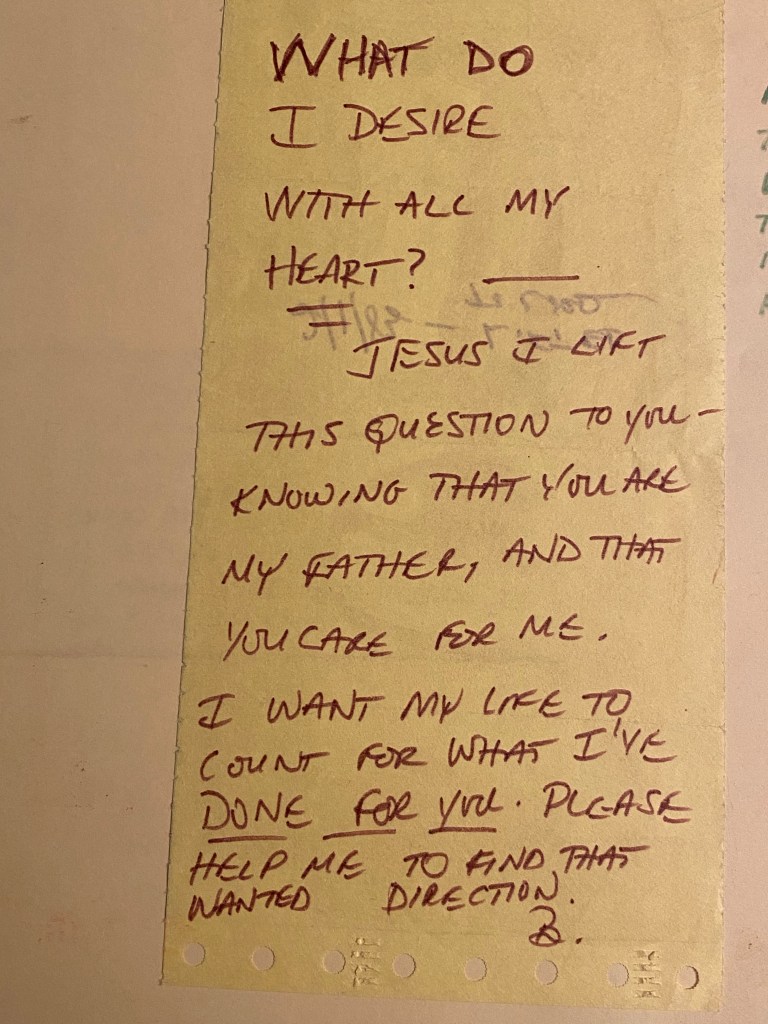 WHAT DO
I DESIRE
WITH ALL MY
HEART? —
JESUS I LIFT
THIS QUESTION TO YOU -
KNOWING THAT YOU ARE
MY FATHER, AND THAT
YOU CARE FOR ME.
I WANT MY LIFE TO
COUNT FOR WHAT I'VE
DONE FOR YOU. PLEASE
HELP ME TO FIND THAT
WANTED DIRECTION.
B.